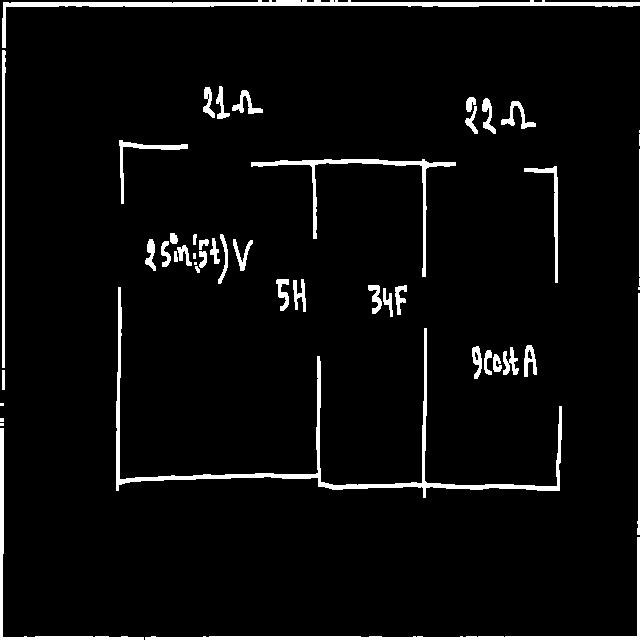 21Ω
22Ω
2sin(5t)V
5H
34F
9costA